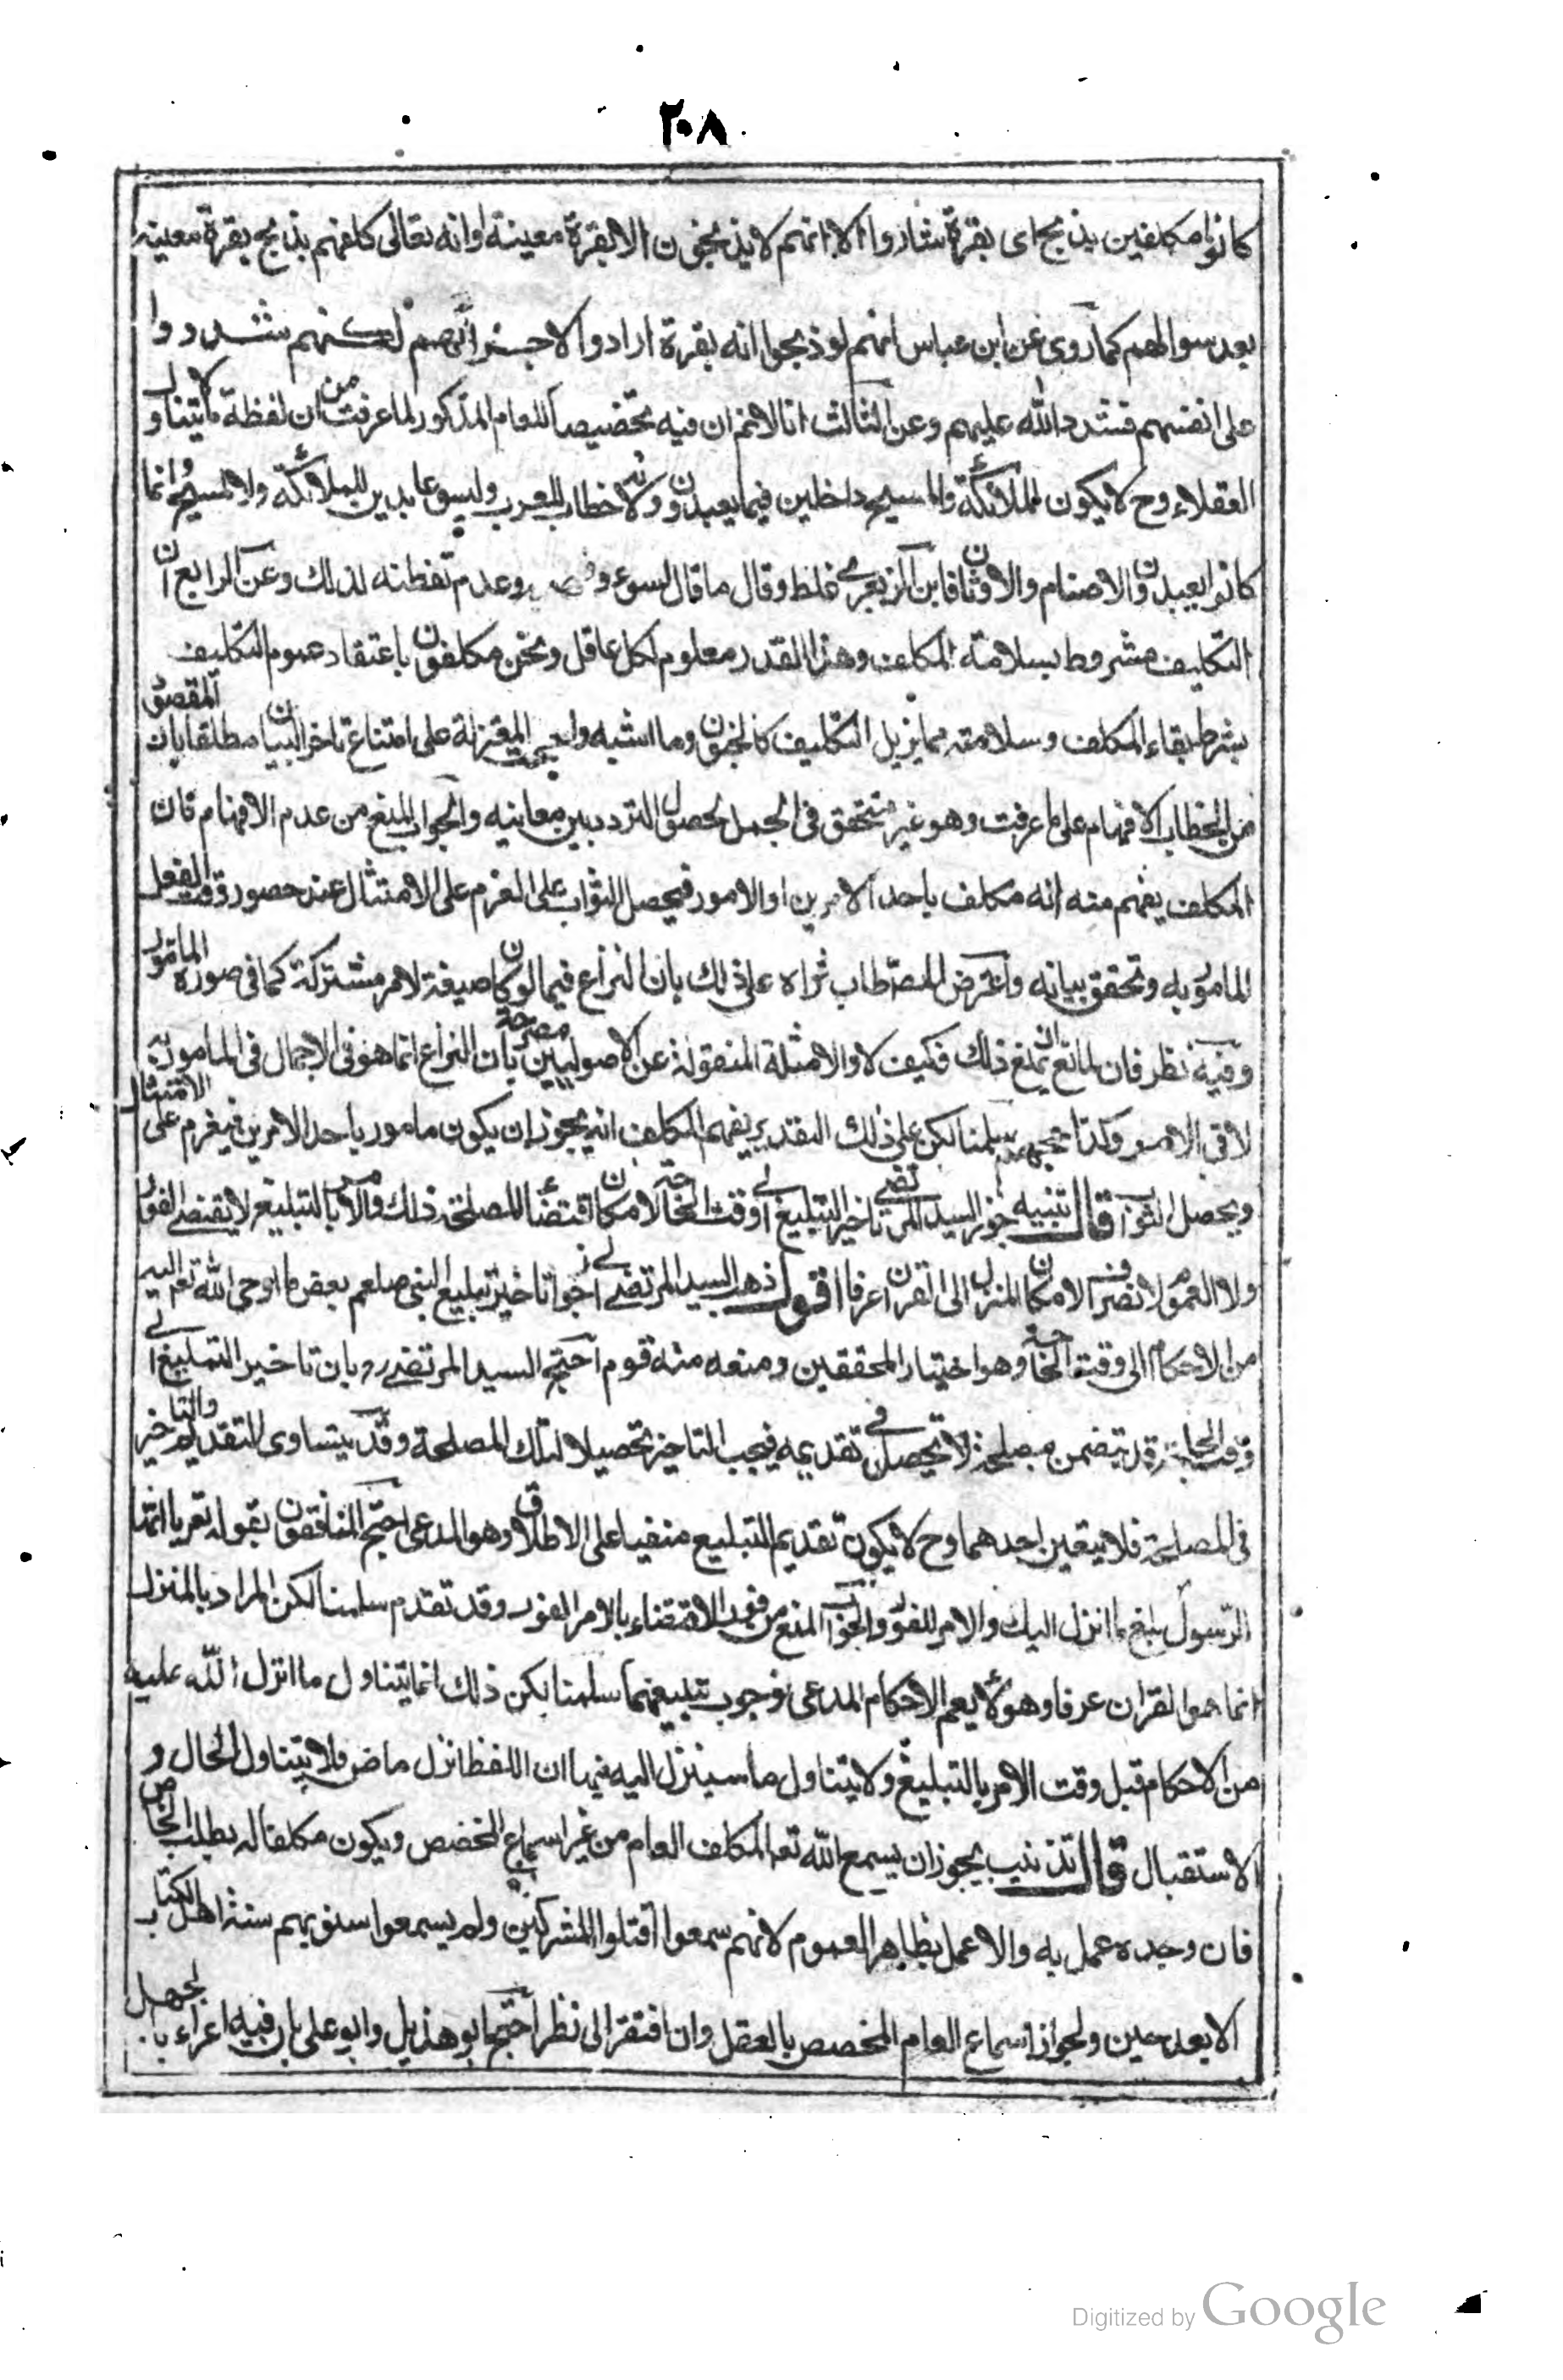 ٢٠٨
كانوا مكلفين بذبح اى بقرة شاؤا الا انهم لا يذبحون الا بقرة معينة وانه تعالى كلفهم بذبح بقرة معينه
بعد سوالهم كما روى عن ابن عباس انهم لو ذبحوا انه بقرة ارادوا لاجزأتهم لكنهم شددوا
على انفسهم فشدد الله عليهم وعن الثالث انا لانم ان فيه تخصيصا للعام المذكور لما عرفت من ان لفظة ما لا يتناول
العقلاء وح لا يكون الملائكة والمسيح داخلين فيما يعبدون ولانه خطاب للعرب وليسوا عابدين للملائكة ولا المسيح وانما
كانوا يعبدون الاصنام والاوثان فابن الزبعرى غلط وقال ما قال لسوء وعدم تفطنه لذلك وعن الرابع ان
التكليف مشروط بسلامة المكلف وهذا القدر معلوم لكل عاقل ونحن مكلفون باعتقاد عموم التكليف
بشرط بقاء المكلف وسلامته مما يزيل التكليف كالجنون وما اشبه واحتجت المعتزلة على امتناع تاخر البيان مطلقا بان المقصود
من الخطاب الافهام على ما عرفت وهو غير متحقق فى المجمل لحصول التردد بين معانيه والجواب المنع من عدم الافهام فان
المكلف يفهم منه انه مكلف باحد الامرين او الامور فيحصل الثواب على العزم على الامتثال عند حضور وقت الفعل
المامور به وتحقق بيانه واعترض المصّ طاب ثراه على ذلك بان النزاع فيما لو كان صيغة الامر مشتركة كما فى صورة المامور
وفيه نظر فان المانع ان يمنع ذلك فكيف لا والامثلة المنقولة عن الاصوليين مصرحة بان النزاع انما هو فى الاجمال فى المامور به
لا فى الامر وكذا حججهم سلمنا لكن على ذلك التقدير يفهم المكلف انه يجوز ان يكون مامور باحد الامرين فيعزم على الامتثال
ويحصل الثواب قال تنبيه جوز السيد المرتضى تاخير التبليغ الى وقت الحاجة لامكان اقتضاء المصلحة ذلك والامر بالتبليغ لا يقتضى الفور
ولا العموم لانصراف الامكان المنزل الى القرآن عرفا اقول ذهب السيد المرتضى الى جواز تاخير تبليغ النبى صلعم بعض ما اوحى الله تعم اليه
من الاحكام الى وقت الحاجة وهو اختيار المحققين ومنعه منه قوم احتج السيد المرتضى ره بان تاخير التبليغ الى
وقت الحاجة قد يتضمن مصلحة لا تحصل فى تقديمه فيجب التاخير تحصيلا لتلك المصلحة وقد يتساوى التقديم والتاخير
فى المصلحة فلا يتعين احدهما وح لا يكون تقديم التبليع منفيا على الاطلاق وهو المدعى احتج المنافقون بقوله تعم يا ايها
الرسول بلغ ما انزل اليك والامر للفور والجواب المنع من الاقتضاء بالامر الفور وقد تقدم سلمنا لكن المراد بالمنزل
انما هو القران عرفا وهو لا يعم الاحكام المدعى وجوب تبليغها سلمنا لكن ذلك انما يتناول ما انزل الله عليه
من الاحكام قبل وقت الامر بالتبليغ ولا يتناول ما سينزل اليه فيها ان اللفظ انزل ماض فلا يتناول الحال و
الاستقبال قال تذنيب يجوز ان يسمع الله تعم المكلف العام من غير اسماع المخصص ويكون مكلفا له بطلب الخاص
فان وجده عمل به والا عمل بظاهر العموم لانهم سمعوا اقتلوا المشركين ولم يسمعوا سنو بهم سنة اهل الكتاب
الا بعد حين ولجواز اسماع العام المخصص بالعقل وان افتقر الى نظر احتج ابو هذيل وابو على بان فيه اغراء بالجهل
Digitized by Google